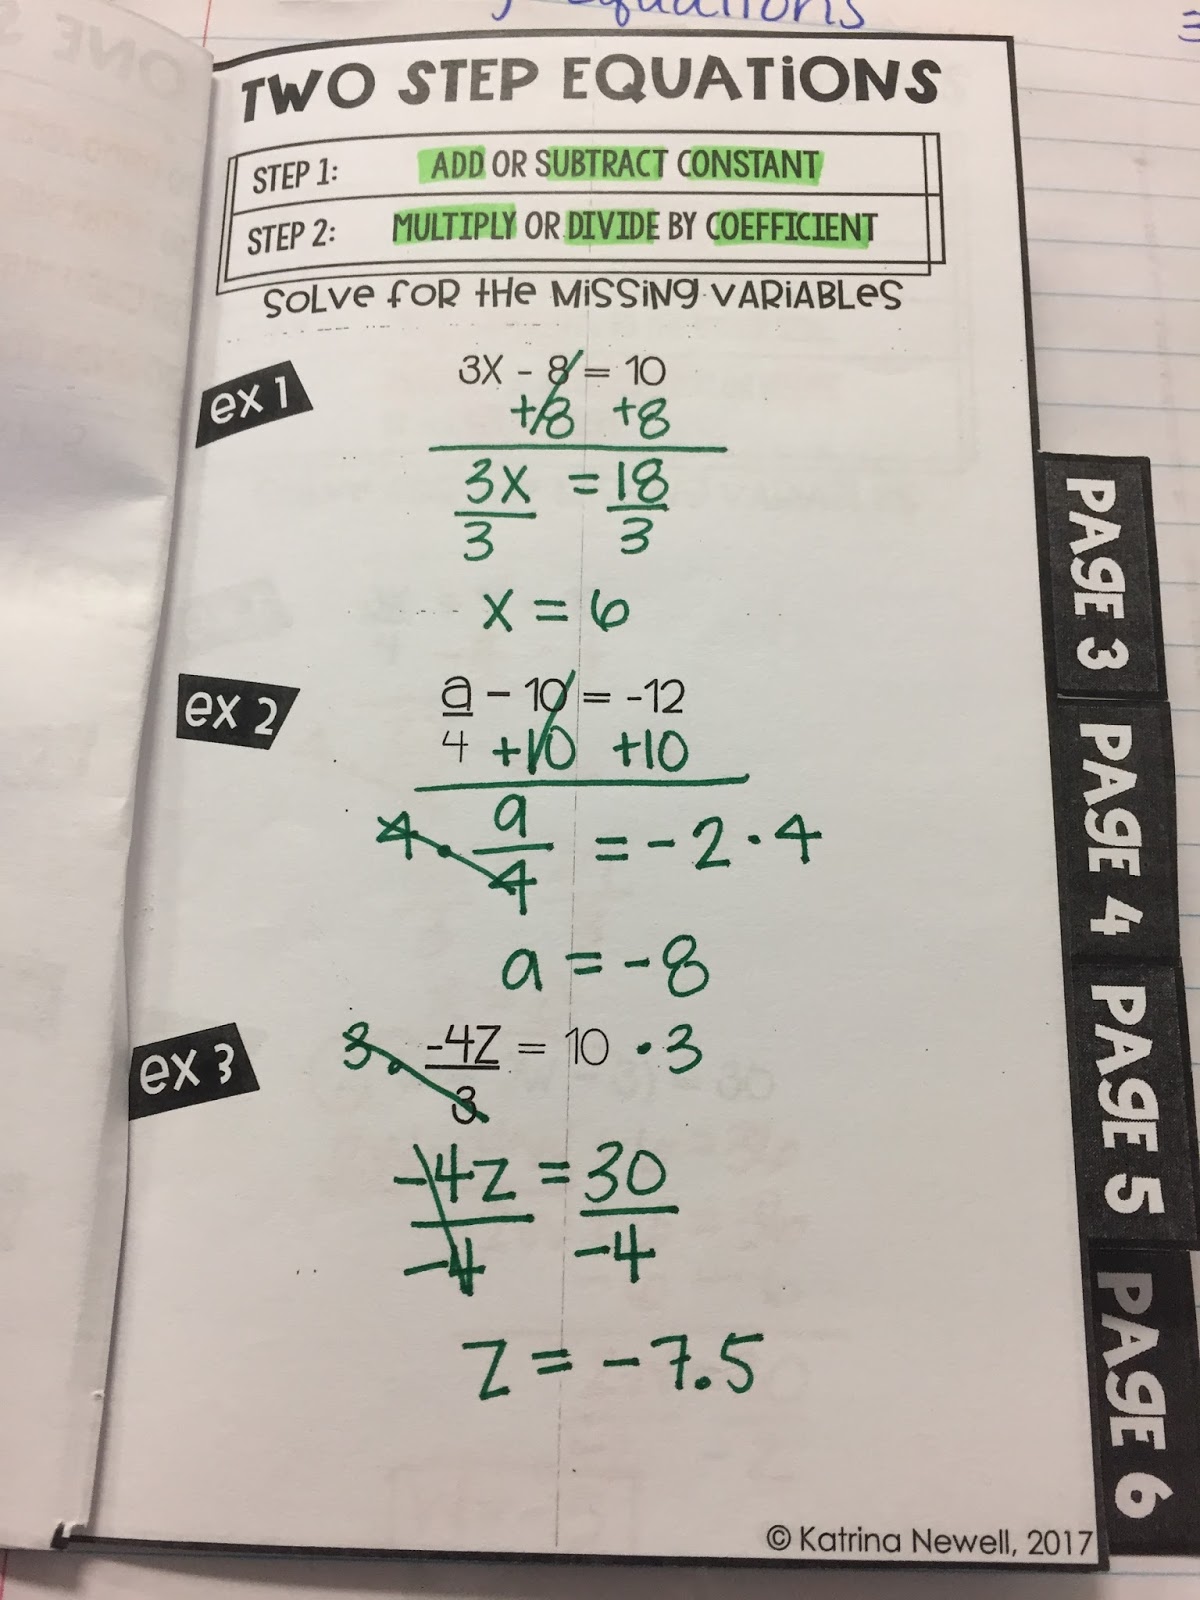 Equations
TWO STEP EQUATiONS
STEP 1: ADD OR SUBTRACT CONSTANT
STEP 2: MULTIPLY OR DIVIDE BY COEFFICIENT
SOLVe fOR tHe MiSSiNg VARiABLeS
ex 1
3X - 8 = 10
+8 +8
3x = 18
3 3
x = 6
ex 2
a - 10 = -12
4 +10 +10
4 · a = -2 · 4
4
a = -8
ex 3
3 · -4Z = 10 · 3
3
-4z = 30
-4 -4
z = -7.5
© Katrina Newell, 2017
PAGE 3
PAGE 4
PAGE 5
PAGE 6